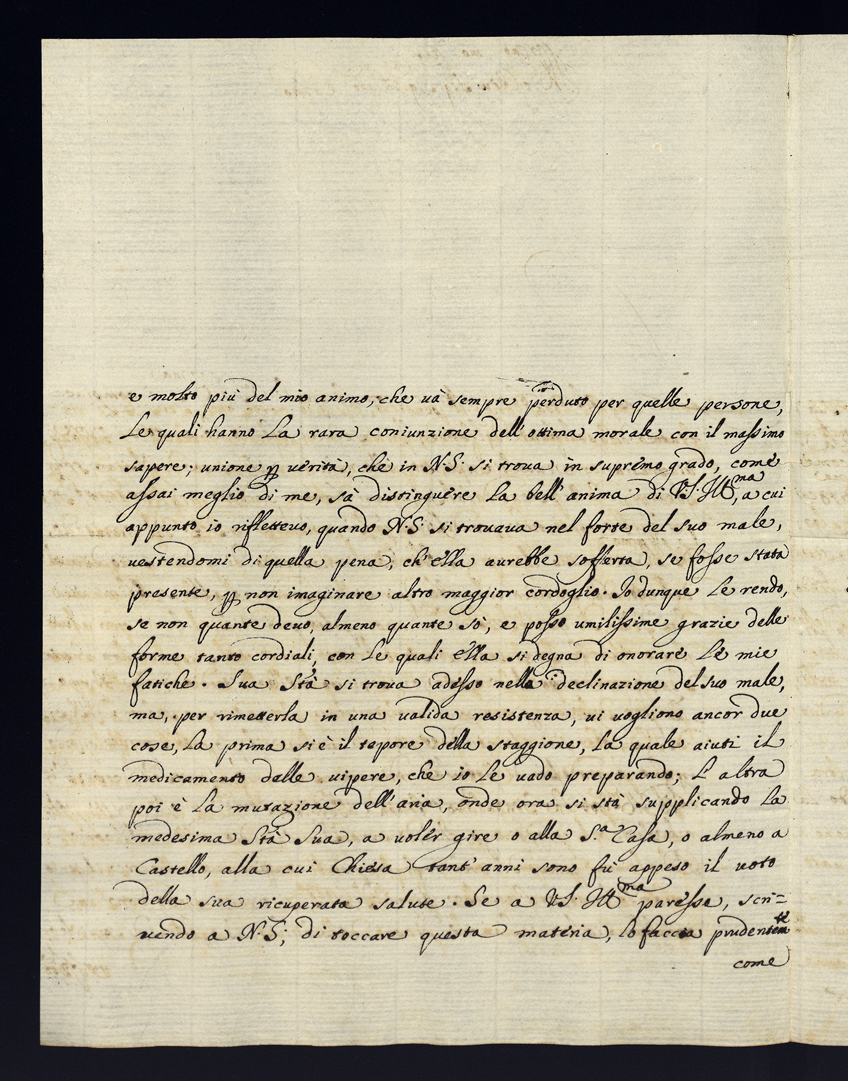 e molto più del mio animo, che và sempre perduto per quelle persone,
Le quali hanno La rara coniunzione dell'ottima morale con il massimo
sapere; unione p verità, che in N.S. si troua in supremo grado, come
assai meglio di me, sà distinguere La bell'anima di V.S. Ill.ma, a cui
appunto io riflettevo, quando N.S. si trouaua nel forte del suo male,
uestendomi di quella pena, ch'ella aurebbe sofferta, se fosse stata
presente, p non imaginare altro maggior cordoglio. Io dunque Le rendo,
se non quante deuo, almeno quante sò, e posso umilissime grazie delle
forme tanto cordiali, con Le quali ella si degna di onorare Le mie
fatiche. Sua Stà si troua adesso nella declinazione del suo male,
ma, per rimetterla in una ualida resistenza, ui uogliono ancor due
cose, La prima si è il tepore della staggione, La quale aiuti il
medicamento delle uipere, che io Le uado preparando; L'altra
poi è La mutazione dell'aria, onde ora si stà supplicando La
medesima Stà Sua, a uoler gire o alla S.a Casa, o almeno a
Castello, alla cui Chiesa tant'anni sono fù appeso il uoto
della sua ricuperata salute. Se a V.S. Ill.ma paresse, scri=
uendo a N.S; di toccare questa materia, lo faccia prudentem.te
come